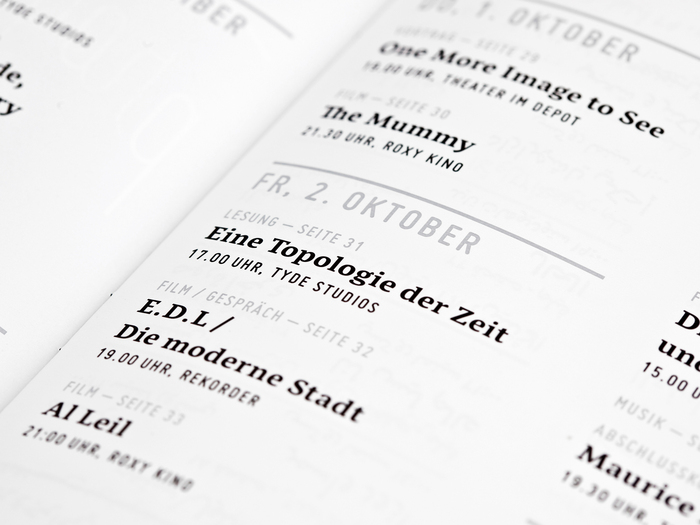 TYDE STUDIOS
DO, 1. OKTOBER
VORTRAG — SEITE 29
One More Image to See
19.00 UHR, THEATER IM DEPOT
FILM — SEITE 30
The Mummy
21.30 UHR, ROXY KINO
FR, 2. OKTOBER
LESUNG — SEITE 31
Eine Topologie der Zeit
17.00 UHR, TYDE STUDIOS
FILM / GESPRÄCH — SEITE 32
E.D.L /
Die moderne Stadt
19.00 UHR, REKORDER
FILM — SEITE 33
Al Leil
21:00 UHR, ROXY KINO
15.00 U
MUSIK — S
ABSCHLUSSK
Maurice
19.30 UHR,